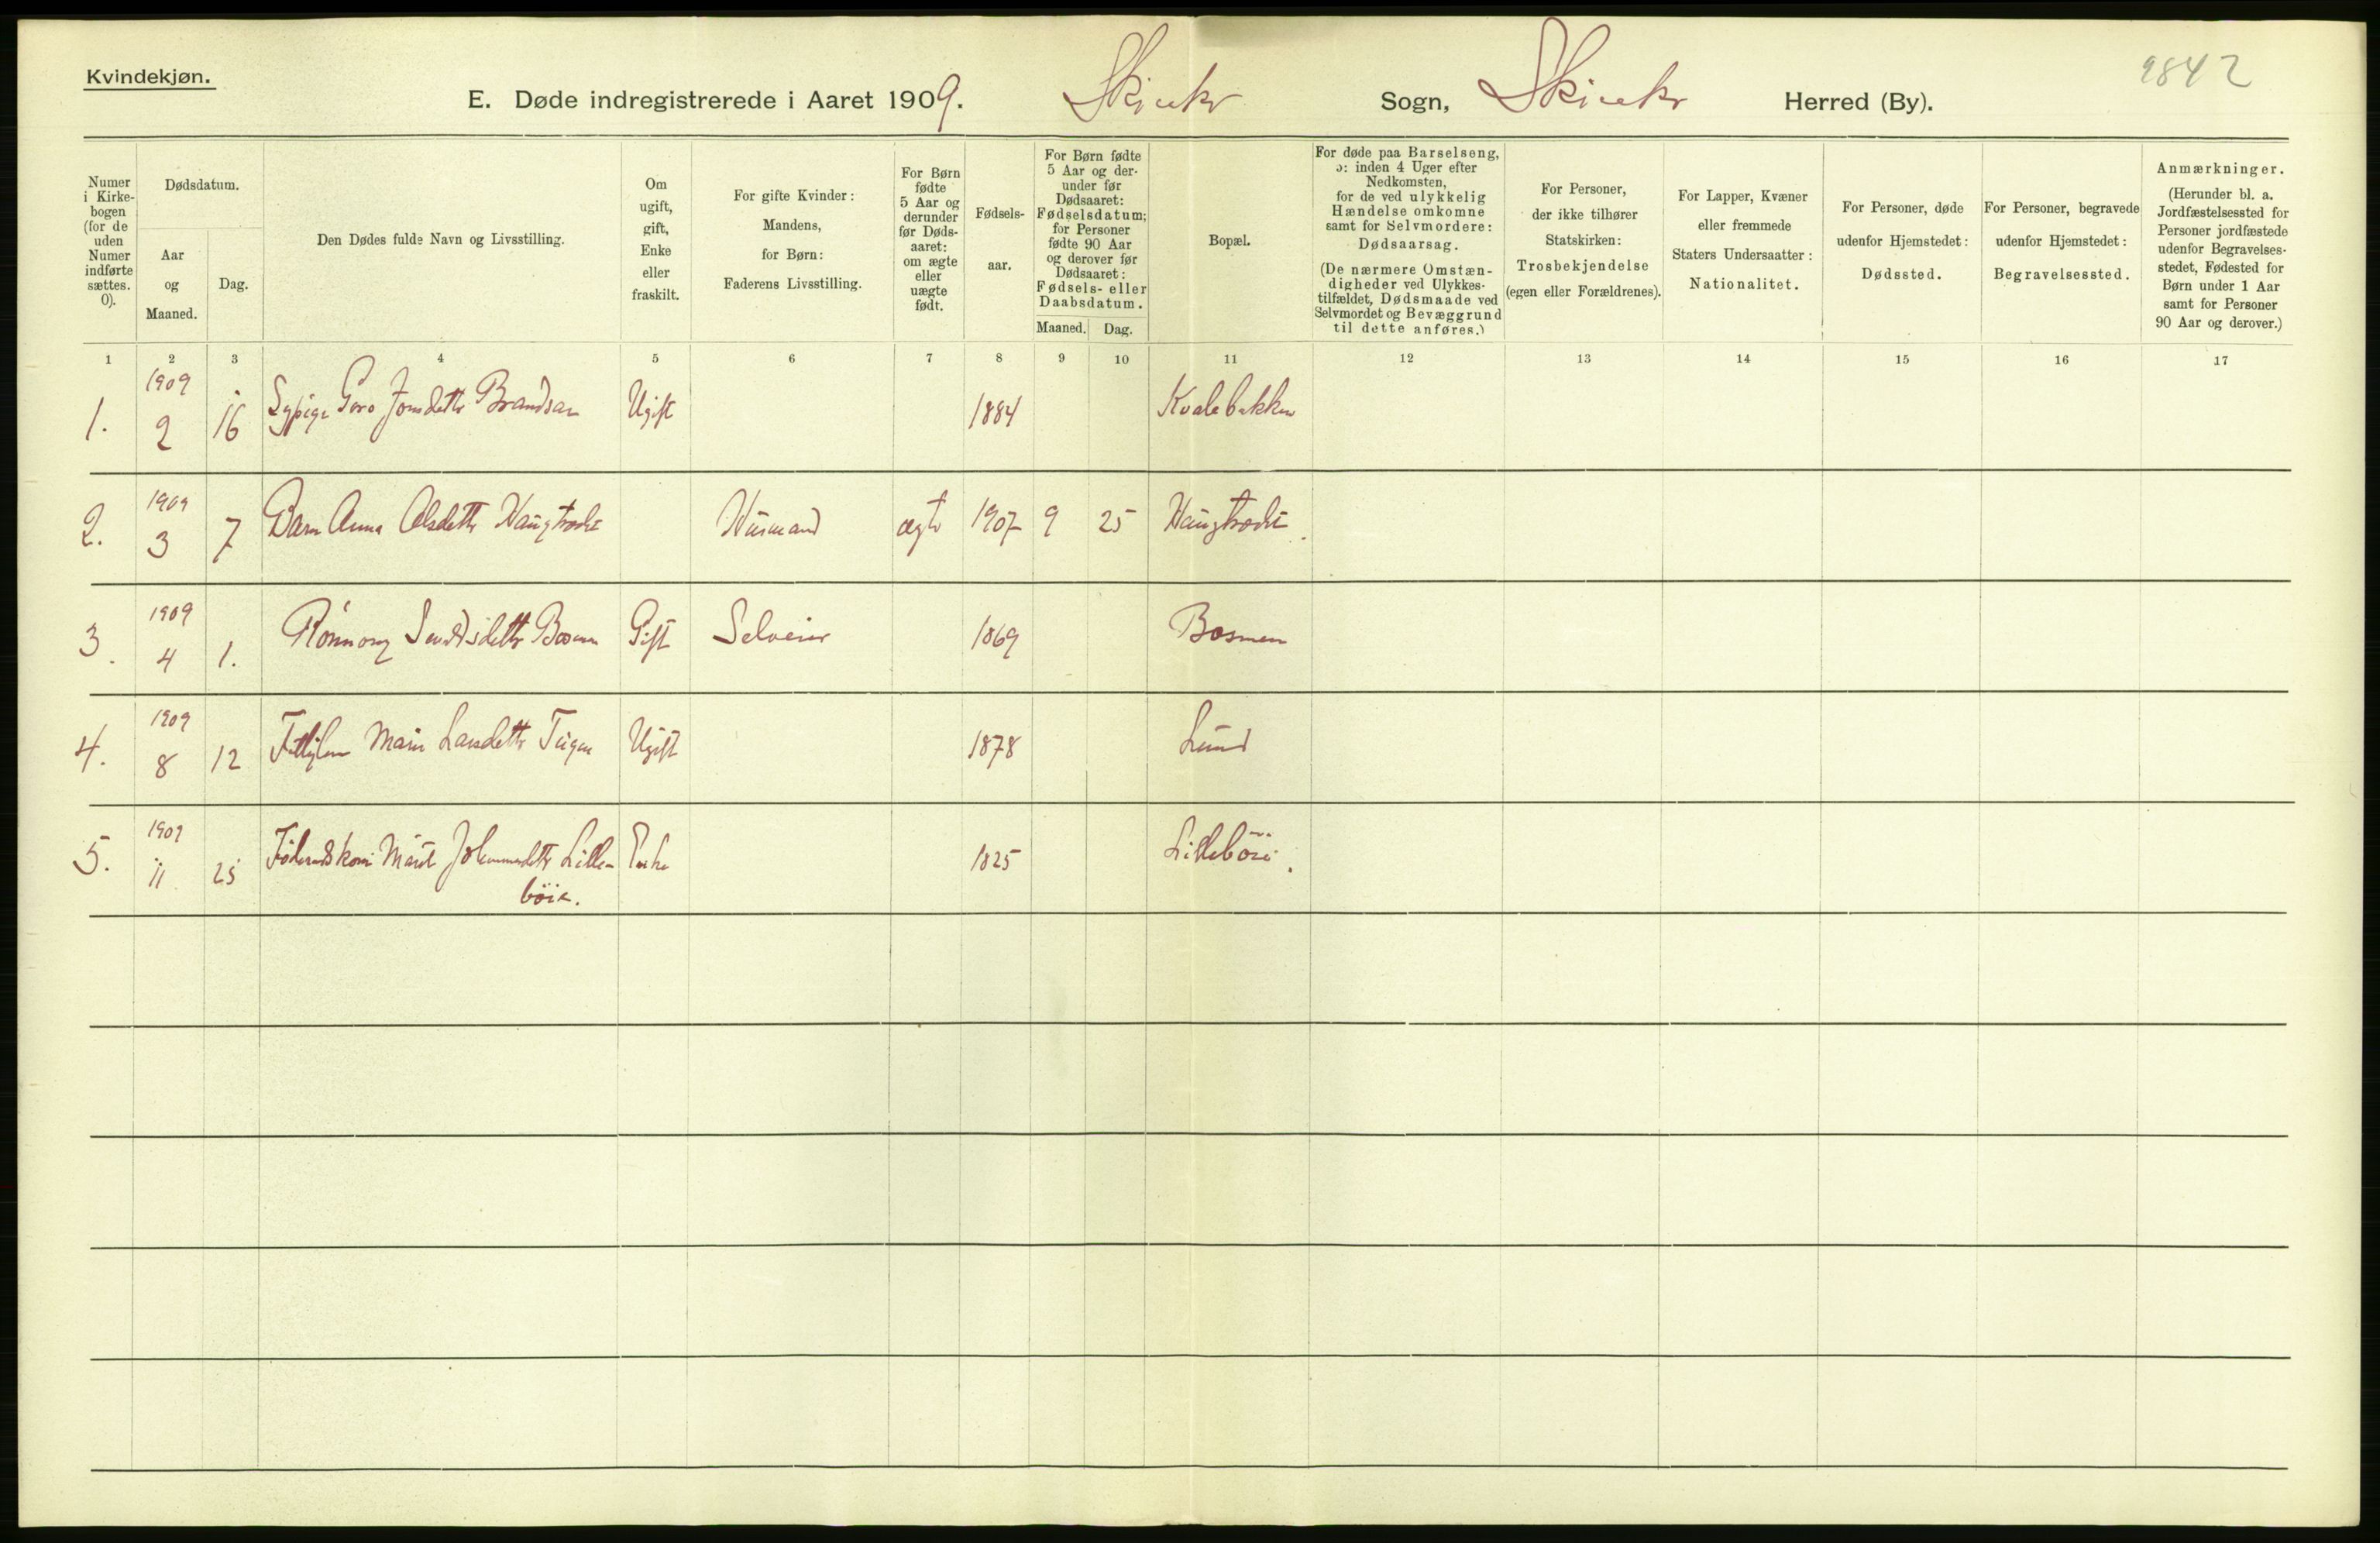 Kvindekjøn.
9842
E. Døde indregistrerede i Aaret 1909. Sogn, Herred (By).
Numer
i Kirke-
bogen
(for de
uden
Numer
indførte
sættes.
0).
Dødsdatum.
Aar
og
Maaned.
Dag.
Den Dødes fulde Navn og Livsstilling.
Om
ugift,
gift,
Enke
eller
fraskilt.
For gifte Kvinder:
Mandens,
for Børn:
Faderens Livsstilling.
For Børn
fødte
5 Aar og
derunder
før Døds-
aaret:
om ægte
eller
uægte
født.
Fødsels-
aar.
For Børn fødte
5 Aar og der-
under før
Dødsaaret:
Fødselsdatum;
for Personer
fødte 90 Aar
og derover før
Dødsaaret:
Fødsels- eller
Daabsdatum.
Maaned. Dag.
Bopæl.
For døde paa Barselseng,
ɔ: inden 4 Uger efter
Nedkomsten,
for de ved ulykkelig
Hændelse omkomne
samt for Selvmordere:
Dødsaarsag.
(De nærmere Omstæn-
digheder ved Ulykkes-
tilfældet, Dødsmaade ved
Selvmordet og Bevæggrund
til dette anføres.)
For Personer,
der ikke tilhører
Statskirken:
Trosbekjendelse
(egen eller Forældrenes).
For Lapper, Kvæner
eller fremmede
Staters Undersaatter:
Nationalitet.
For Personer, døde
udenfor Hjemstedet:
Dødssted.
For Personer, begravede
udenfor Hjemstedet:
Begravelsessted.
Anmærkninger.
(Herunder bl. a.
Jordfæstelsessted for
Personer jordfæstede
udenfor Begravelses-
stedet, Fødested for
Børn under 1 Aar
samt for Personer
90 Aar og derover.)
1 2 3 4 5 6 7 8 9 10 11 12 13 14 15 16 17
1909
1. 2 16 Sypige Goro Jonsdatter Ugift 1884 Kvalebakken
1909
2. 3 7 Barn Anna Olsdatter Husmand ægte 1907 9 25
1909
3. 4 1. Rönnoug Gift Selveier 1869 Bosmen
1909
4. 8 12 Marie Larsdatter Ugift 1878 Lund
1909
5. 11 25 Marit Johannesdatter Lille- Enke 1825 Lilleböie.
böie.